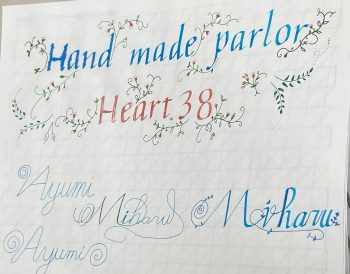 Hand made parlor
Heart 38
Ayumi
Miharu Miharu
Ayumi